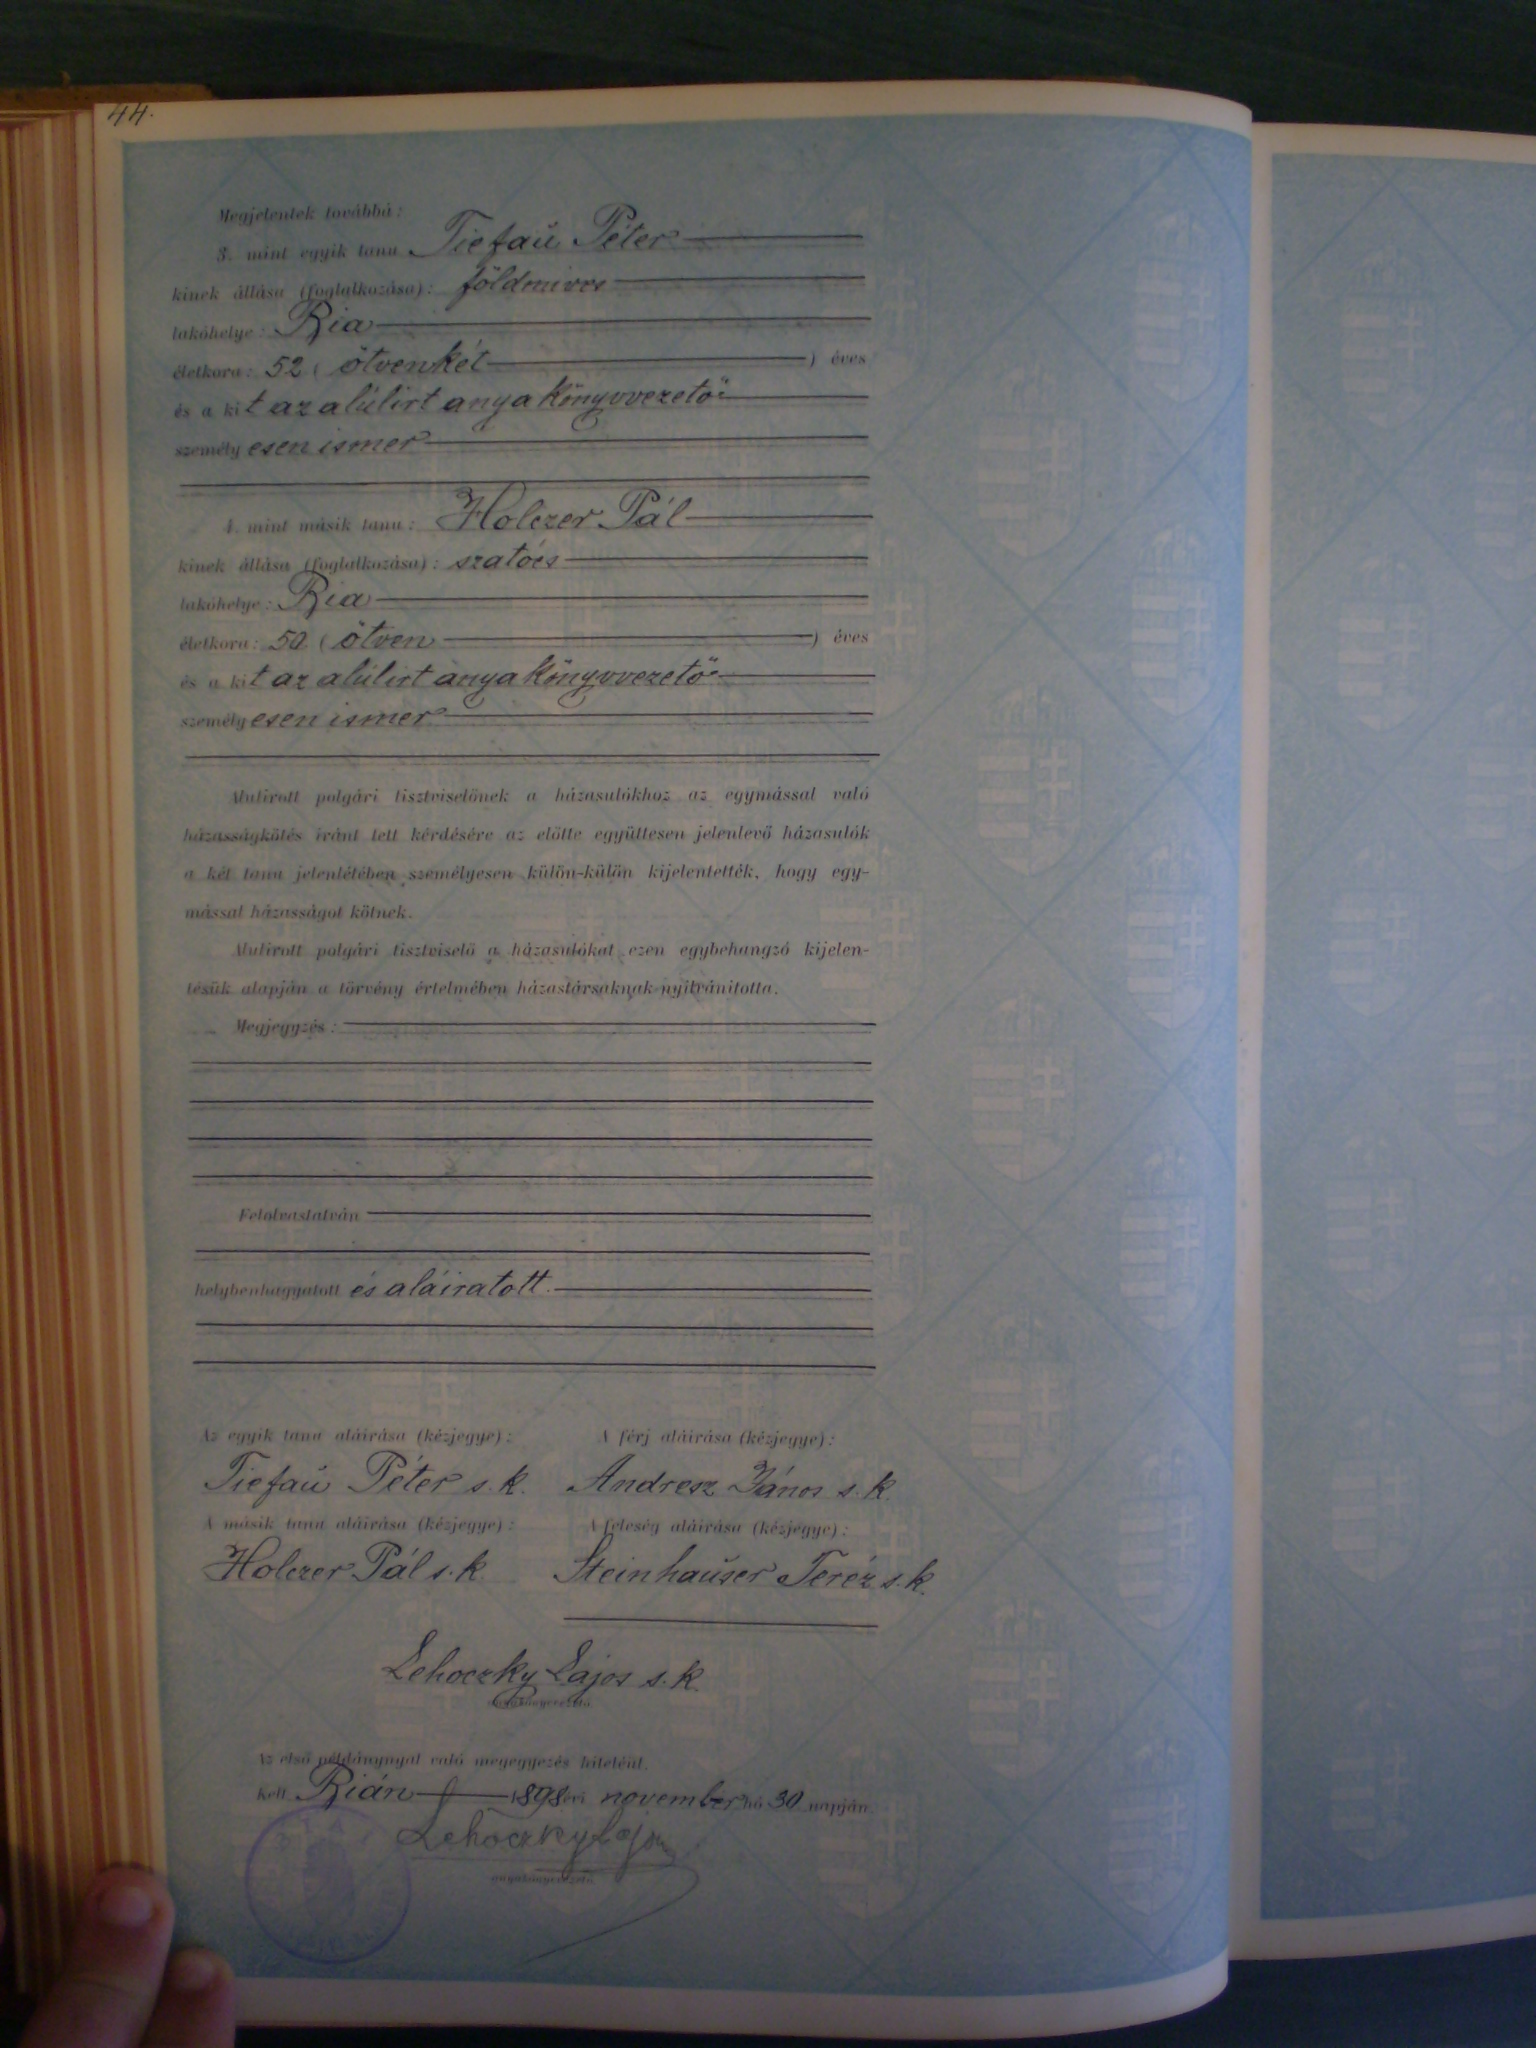 44.
Megjelentek továbbá:
3. mint egyik tanu Tiefaŭ Péter
kinek állása (foglalkozása): földmives
lakóhelye: Ria
életkora: 52 (ötvenkét) éves
és a kit az alúlirt anyakönyvvezető
személyesen ismer
4. mint másik tanu: Holczer Pál
kinek állása (foglalkozása): szatócs
lakóhelye: Ria
életkora: 50 (ötven) éves
és a kit az alúlirt anyakönyvvezető
személyesen ismer
Alulirott polgári tisztviselőnek a házasulókhoz az egymással való
házasságkötés iránt tett kérdésére az előtte együttesen jelenlevő házasulók
a két tanu jelenlétében személyesen külön-külön kijelentették, hogy egy-
mással házasságot kötnek.
Alulirott polgári tisztviselő a házasulókat ezen egybehangzó kijelen-
tésük alapján a törvény értelmében házastársaknak nyilvánitotta.
Megjegyzés:
Felolvastatván
helybenhagyatott és aláiratott.
Az egyik tanu aláirása (kézjegye): A férj aláirása (kézjegye):
Tiefaŭ Péter s. k. Andresz János s. k.
A másik tanu aláirása (kézjegye): A feleség aláirása (kézjegye):
Holczer Pál s. k. Steinhaŭser Teréz s. k.
Lehoczky Lajos s. k.
anyakönyvvezető
Az első példánynyal való megegyezés hiteléül.
Kelt Rián 1898 évi november hó 30 napján
Lehoczky Lajos
anyakönyvvezető